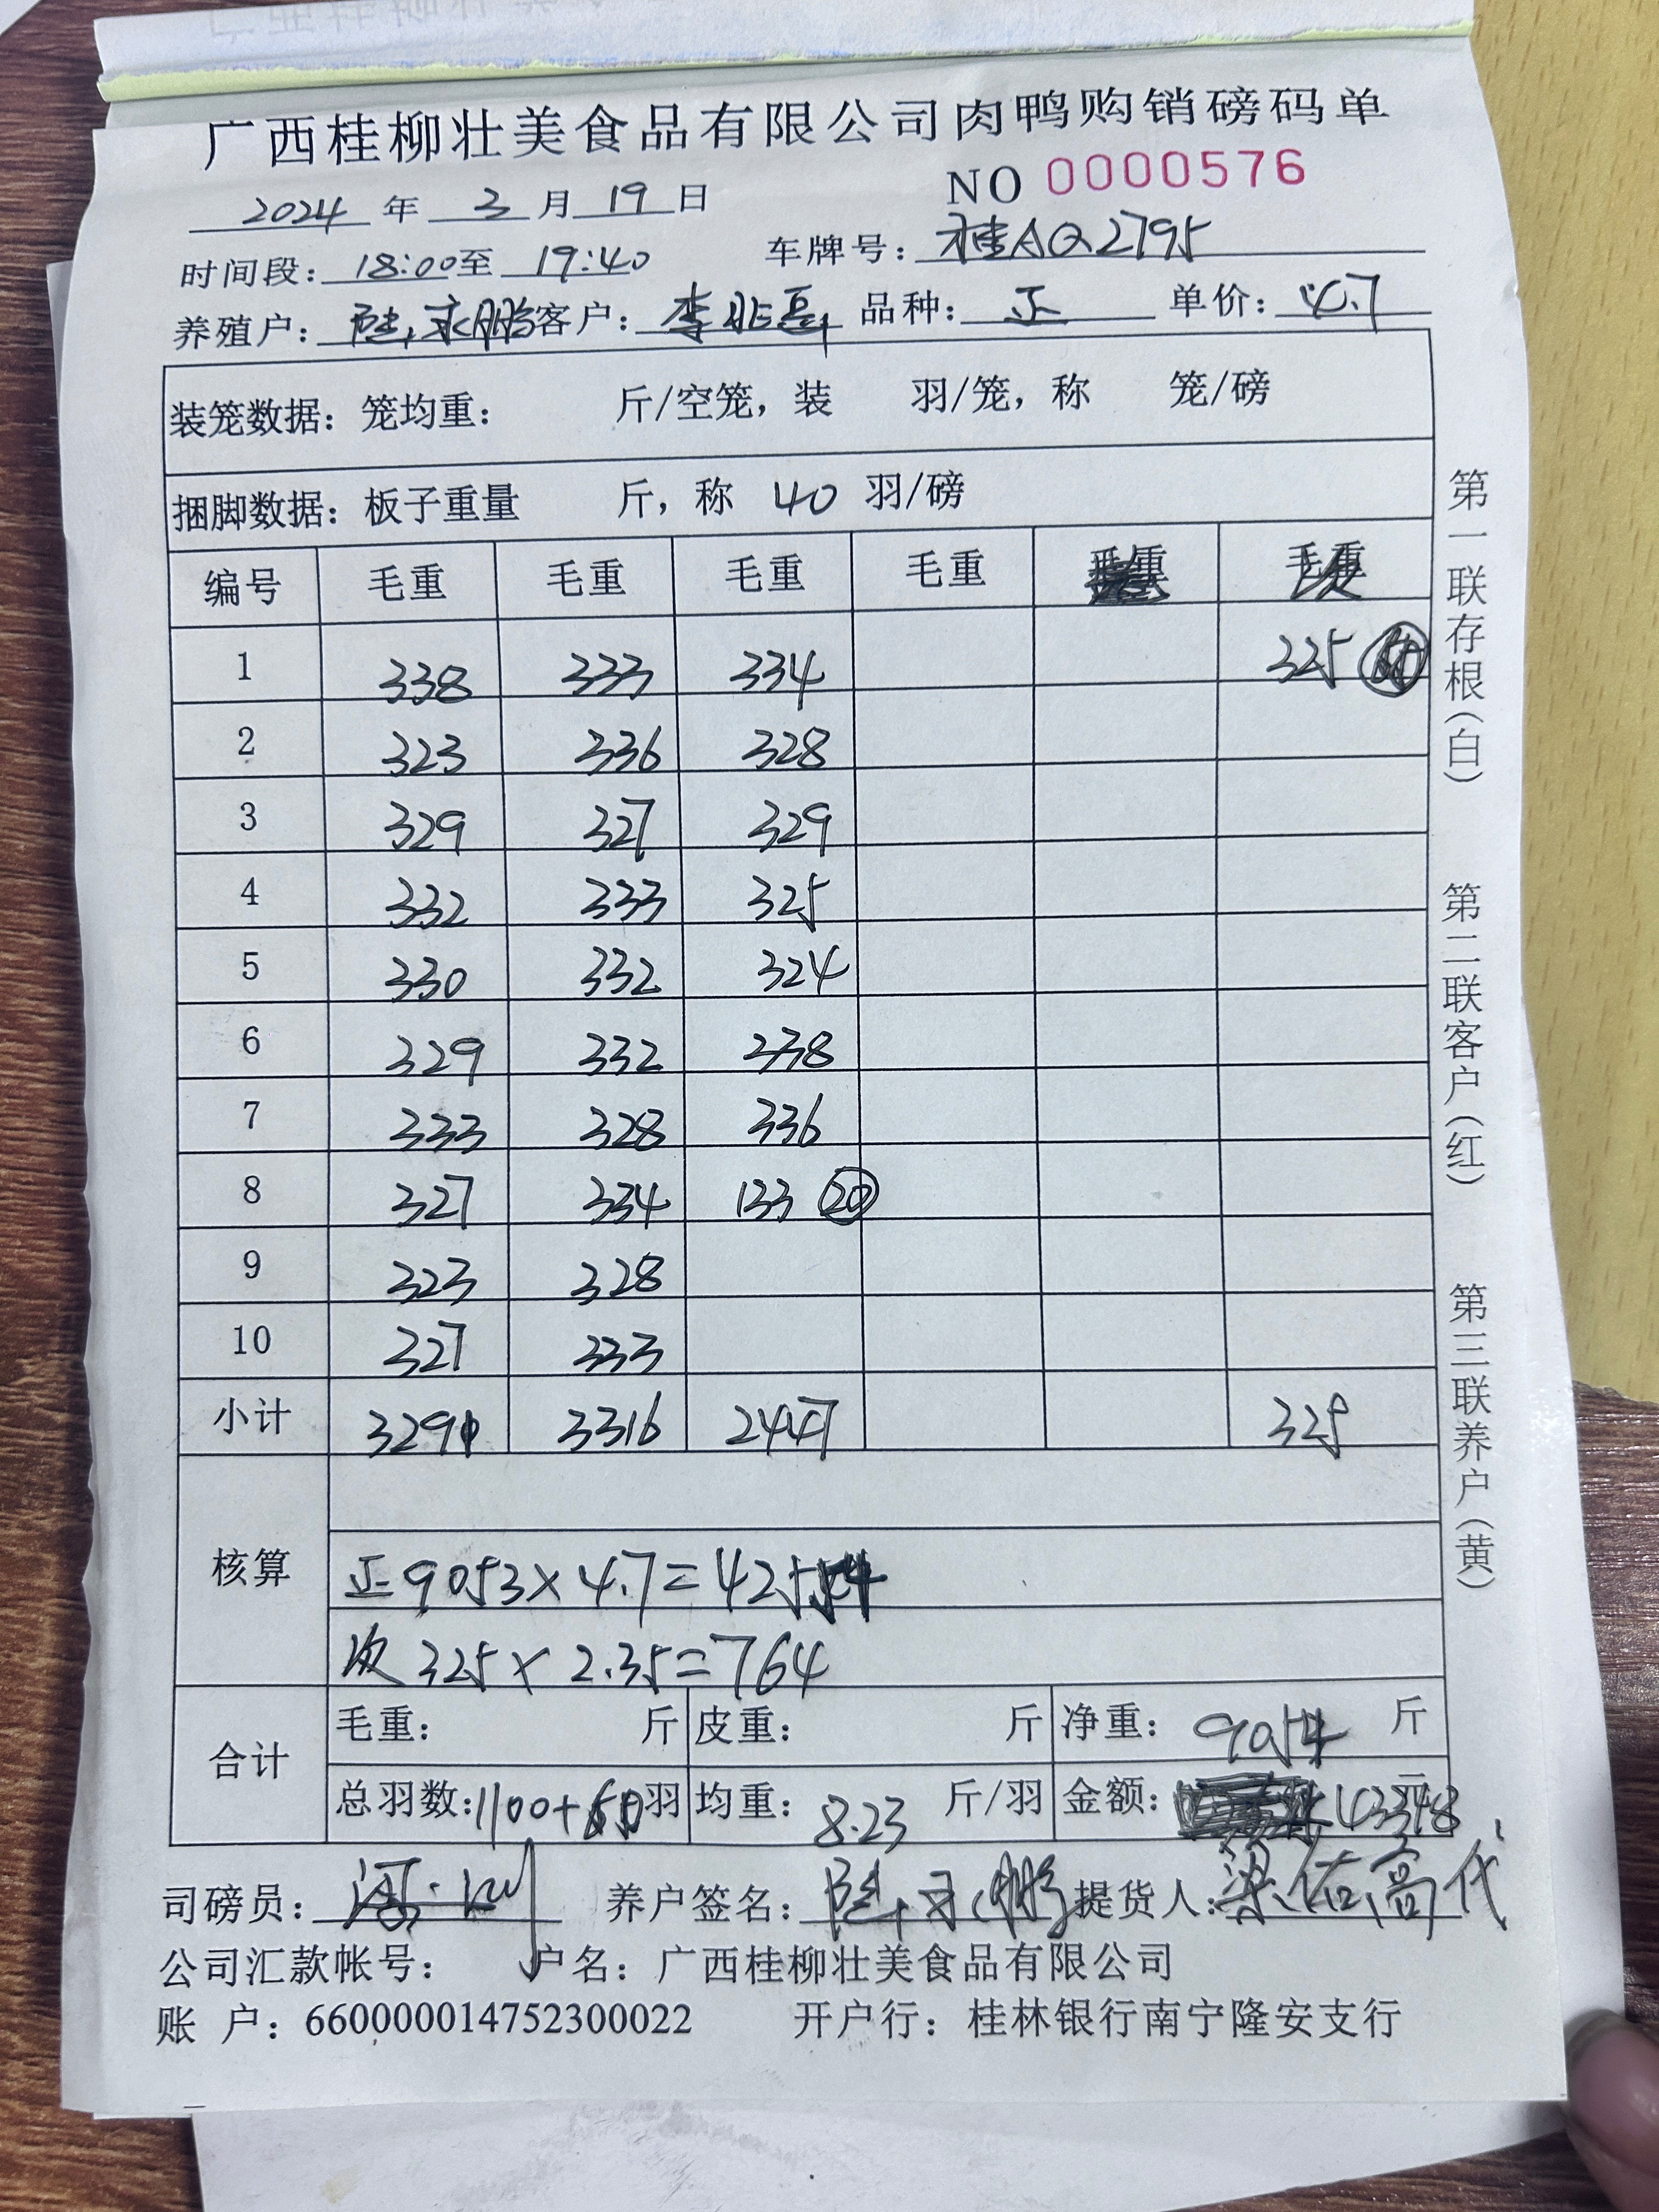 广西桂柳壮美食品有限公司肉鸭购销磅码单
NO 0000576
2024 年 3 月 19 日
时间段: 18:00至 19:40 车牌号: 桂AQ2795
养殖户: 陆永鹏 客户: 李兆 品种: 正 单价: 4.7
装笼数据: 笼均重: 斤/空笼, 装 羽/笼, 称 笼/磅
捆脚数据: 板子重量 斤, 称 40 羽/磅
编号 毛重 毛重 毛重 毛重 毛重 毛重
1 338 333 334 325
2 323 336 328
3 329 327 329
4 332 333 325
5 330 332 324
6 329 332 338
7 333 328 336
8 327 334 133 20
9 323 328
10 327 333
小计 3291 3316 2447 325
核算
正 9053×4.7=42554
次 325×2.35=764
合计 毛重: 斤 皮重: 斤 净重: 9054 斤
总羽数: 1100+ 羽 均重: 8.23 斤/羽 金额: 43318 元
司磅员: 养户签名: 陆永鹏 提货人: 梁佑高代
公司汇款帐号: 户名: 广西桂柳壮美食品有限公司
账 户: 660000014752300022 开户行: 桂林银行南宁隆安支行
第一联存根(白) 第二联客户(红) 第三联养户(黄)